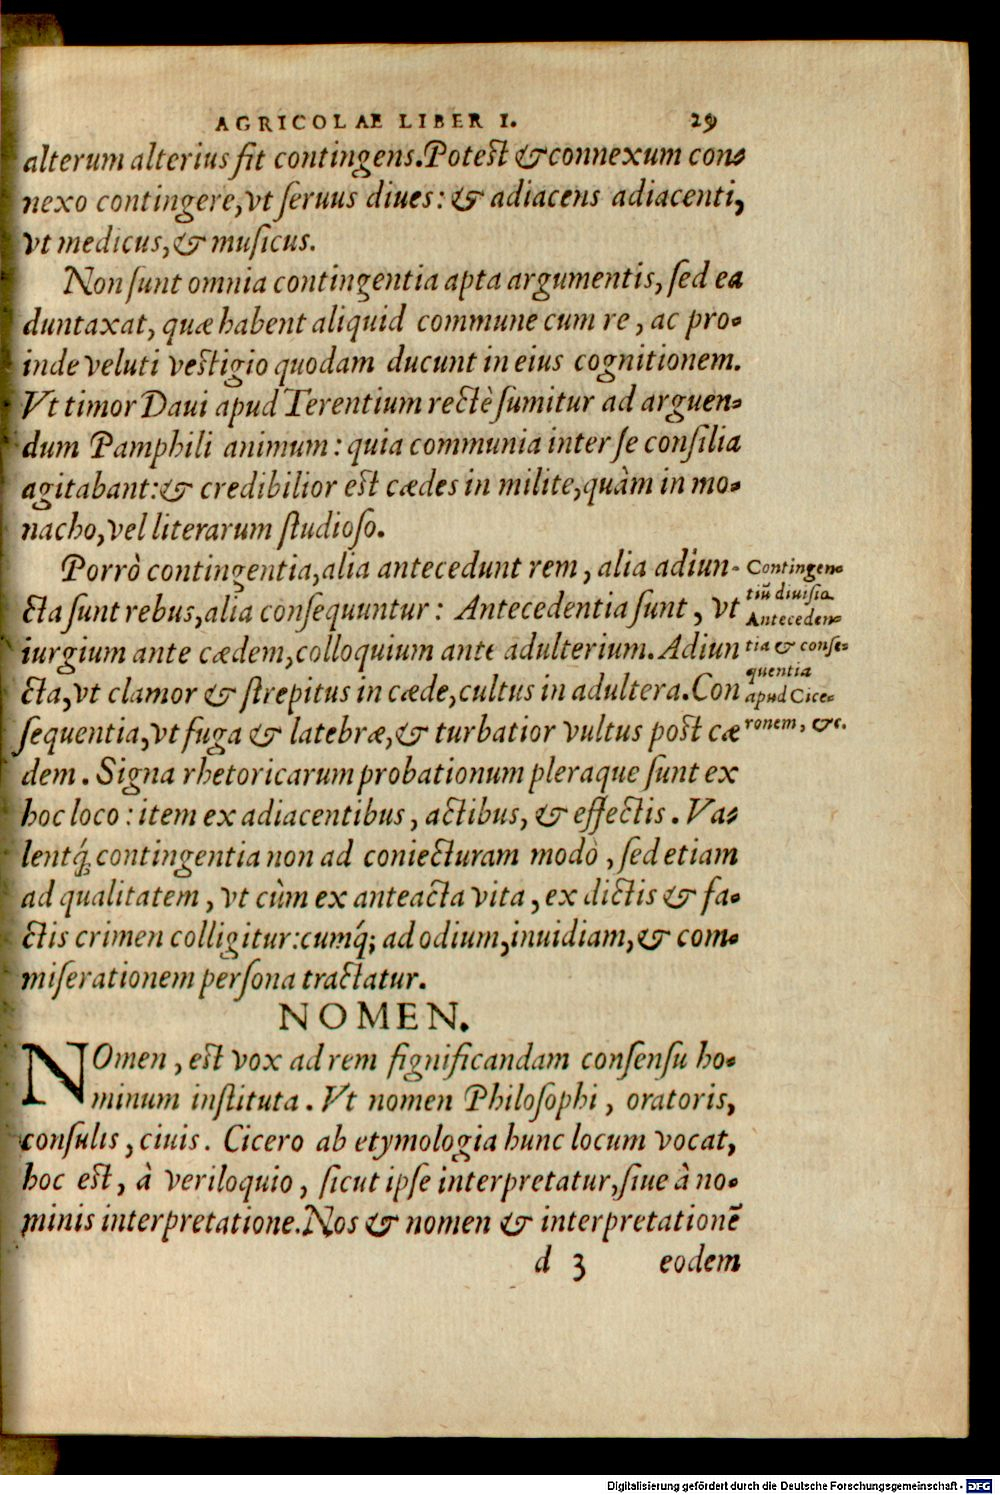 AGRICOLAE LIBER I. 29
alterum alterius fit contingens. Potest & connexum con-
nexo contingere, vt ſeruus diues: & adiacens adiacenti,
vt medicus, & muſicus.
Non ſunt omnia contingentia apta argumentis, ſed ea
duntaxat, quæ habent aliquid commune cum re, ac pro-
inde veluti veſtigio quodam ducunt in eius cognitionem.
Vt timor Daui apud Terentium rectè ſumitur ad arguen-
dum Pamphili animum: quia communia inter ſe conſilia
agitabant: & credibilior eſt cædes in milite, quàm in mo-
nacho, vel literarum ſtudioſo.
Porrò contingentia, alia antecedunt rem, alia adiun-
cta ſunt rebus, alia conſequuntur: Antecedentia ſunt, vt
iurgium ante cædem, colloquium ante adulterium. Adiun
cta, vt clamor & ſtrepitus in cæde, cultus in adultera. Con
ſequentia, vt fuga & latebræ, & turbatior vultus poſt cæ
dem. Signa rhetoricarum probationum pleraque ſunt ex
hoc loco: item ex adiacentibus, actibus, & effectis. Va-
lentq́; contingentia non ad coniecturam modò, ſed etiam
ad qualitatem, vt cùm ex anteacta vita, ex dictis & fa-
ctis crimen colligitur: cumq́; ad odium, inuidiam, & com-
miſerationem perſona tractatur.
Contingen-
tiũ diuiſia
Anteceden-
tia & conſe-
quentia
apud Cice-
ronem, &c.
NOMEN.
NOmen, eſt vox ad rem ſignificandam conſenſu ho-
minum inſtituta. Vt nomen Philoſophi, oratoris,
conſulis, ciuis. Cicero ab etymologia hunc locum vocat,
hoc eſt, à veriloquio, ſicut ipſe interpretatur, ſiue à no-
minis interpretatione. Nos & nomen & interpretationẽ
d 3 eodem
Digitalisierung gefördert durch die Deutsche Forschungsgemeinschaft - DFG